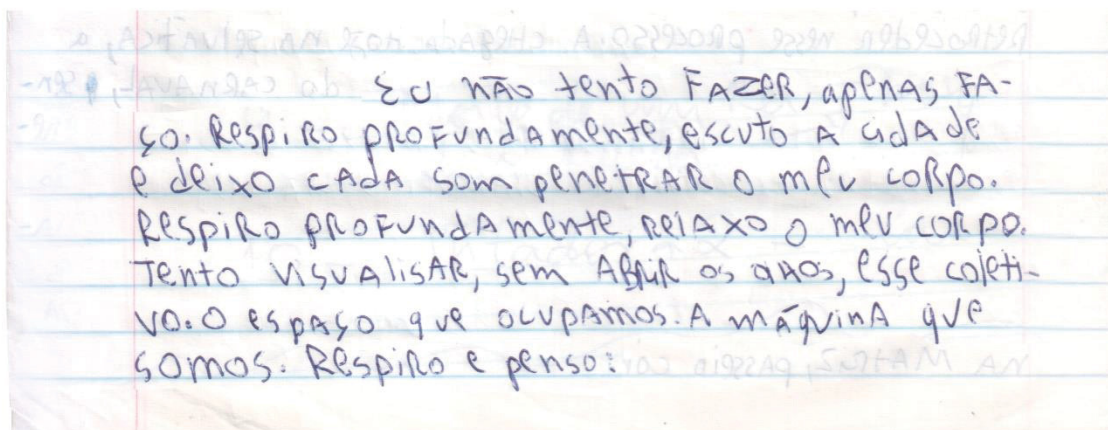 Eu não tento FAZER, apenas FA-
ço. Respiro profundamente, escuto a cidade
e deixo cada som penetrar o meu corpo.
Respiro profundamente, relaxo o meu corpo.
Tento visualisar, sem abrir os olhos, esse coleti-
vo. O espaço que ocupamos. A máquina que
somos. Respiro e penso: